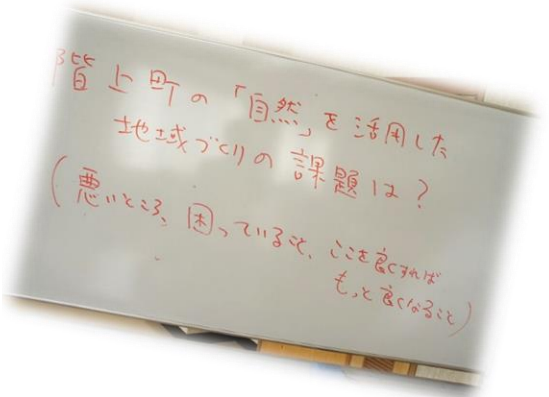 階上町の「自然」を活用した
地域づくりの課題は？
(悪いところ、困っていること、ここを良くすれば
もっと良くなること)